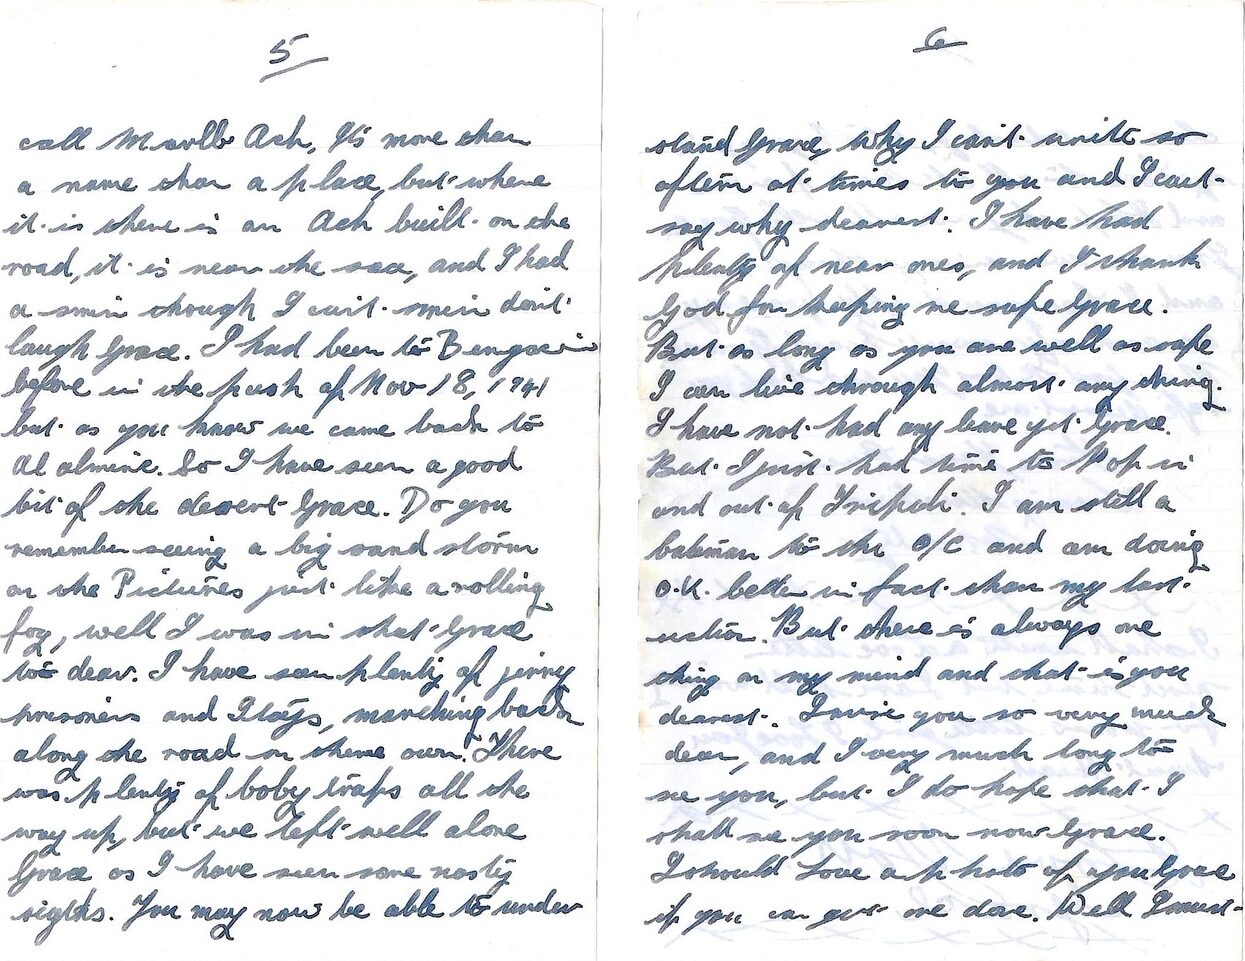 5
call Marlb Ach, It's more than
a name than a place, but where
it is there is an Ach built on the
road, it is near the sea, and I had
a swim though I can't swim don't
laugh Grace. I had been to Bengazi
before in the push of Nov 18, 1941
but as you know we came back to
Al almine. So I have seen a good
bit of the desert Grace. Do you
remember seeing a big sand storm
on the Pictures just like a rolling
fog, well I was in that Grace
too dear. I have seen plenty of jerry
prisoners and Itays, marching back
along the road on there own. There
was plenty of boby traps all the
way up, but we left well alone
Grace as I have seen some nasty
sights. You may now be able to under
6
stand Grace, why I can't write so
oftern at times to you and I can't
say why dearest. I have had
plenty of near ones, and I thank
God for keeping me safe Grace.
But as long as you are well as safe
I can live through almost any thing.
I have not had any leave yet Grace.
But I just had time to Pop in
and out of Tripoli. I am still a
batman to the O/C and am doing
O.K. better in fact than my last
But there is always one
thing on my mind and that is you
dearest. I miss you so very much
dear, and I very much long to
see you, but I do hope that I
shall see you soon now Grace.
I should Love a photo of you Grace
if you can get one done. Well I must